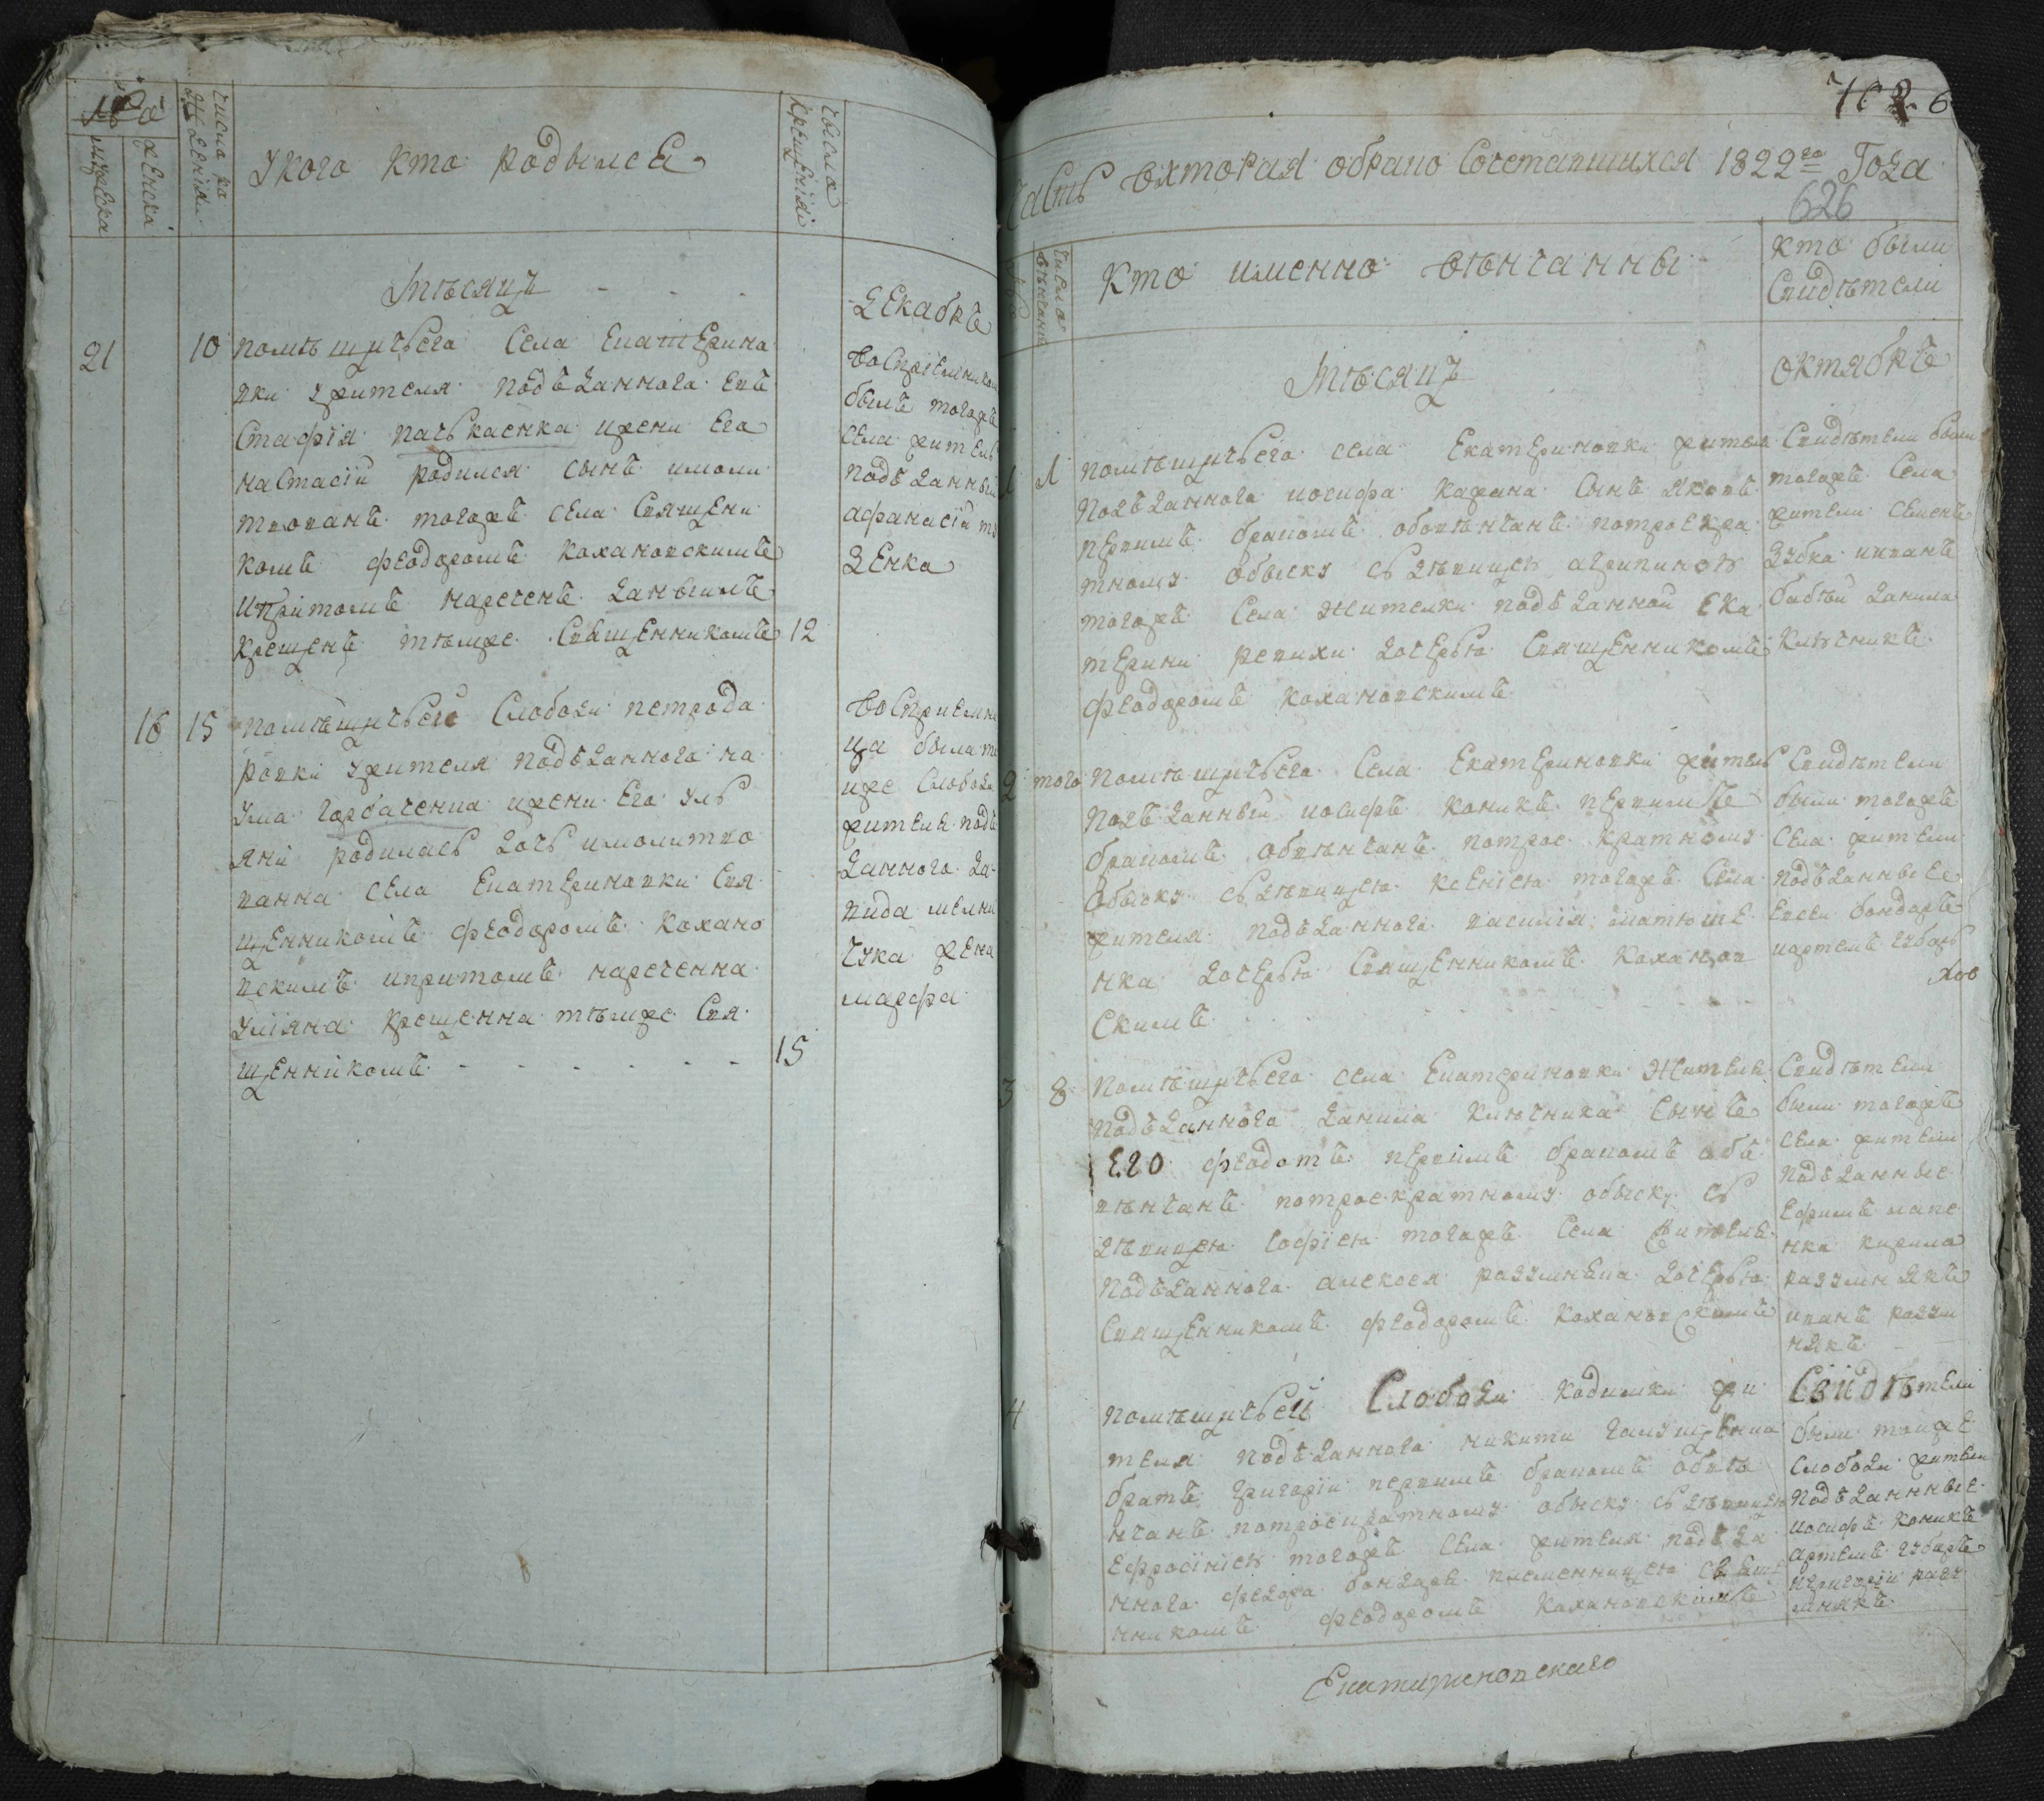 У кого кто родылся
мужеска
женска
Числа рождения
Числа крещения
Месяцъ - - -
Декабрь
21
10
помѣщичьего Села Екатерино
вки ужителя подъданного Евъ
стафія Паськаенка ижени Его
настасіи родился сынъ имоли
твованъ тогожъ села Священи
комъ феодоромъ Кохановскимъ
ипритомъ нареченъ Даныимъ
Крещенъ тѣмже Священникомъ 12
Воспріемником
былъ тогожъ
села житель
подъданный
афанасій
16 15
помѣщичьего Слободи петрода
ровки ужителя подъданного на
ума Горбаченка ижени Его уль
яни родилась дочь имолитво
ванна села Екатериновки Свя
щенникомъ феодоромъ Кохано
вскимъ ипритомъ нареченна
уліяна Крещенна тѣмже Свя
щенникомъ - - - - - - 15
Восприемни
ца была то
иже Слободи
жителя подъ
данного да
вида мелни
чука жена
марфа
626
Часть вхторая обрано Сочетавшихся 1822го Года
626
Числа вѣнчания
Кто именно вѣнчанны
Кто были
Свидѣтели
Месяцъ
Октябрь
1 1
помѣщичьего села Екатериновки жителя
подъданного иосифа Карана Сынъ яковъ
первимъ бракомъ обовѣнчанъ потроекра
тному обыску сь дѣвицею агрипиною
тогожъ Села Жителки подъданной Ека
терини Ревихи дочерью Священникомъ
феодоромъ Кохановскимъ
Свидѣтели были
тогожъ Села
жители Семенъ
Зубко иИванъ
бабъй Данила
Ключникъ
2 того
помѣщичьего Села Екатериновки житель
подъданный иосифъ Коникъ первимъ
бракомъ обвѣнчанъ потрое кратному
Обыску сь дѣвицею Ксенією тогожъ Села
жителя подъданного василія матюше
нка дочерью Священникомъ Коханов
скимъ
Свидѣтели
были тогожъ
села жители
подъданные
Евсеи бондаръ
иартемъ Губарь
3 8
Помѣщичьего села Екатериновки Жителя
подъданного Данила Ключника Сынъ
Его феодотъ первимъ бракомъ объ
вѣнчанъ потроекратному обыску сь
дѣвицею Софією тогожъ Села жителя
подъданного алексея разумнека дочерью
Священникомъ феодоромъ Кохановскимъ
Свидѣтели
были тогожъ
села жители
подъданные
Ефимъ
нка кирило
разумнякъ
иванъ разум
някъ
4
помѣщичьей Слободи Кодимки жи
теля подъданного никити Галущенка
братъ григорій первимъ бракомъ обвѣ
нчанъ потроекратному обыску сь дѣвицею
Ефросініею тогожъ села жителя подъда
нного федора бондаря племенницею свяще
нникомъ феодоромъ Кохановскимъ
Свидѣтели
были тоиже
Слободи жители
подъданные
иосифъ Коникъ
артемъ Губаръ
игригорій разу
мнякъ
Екатириновскаго